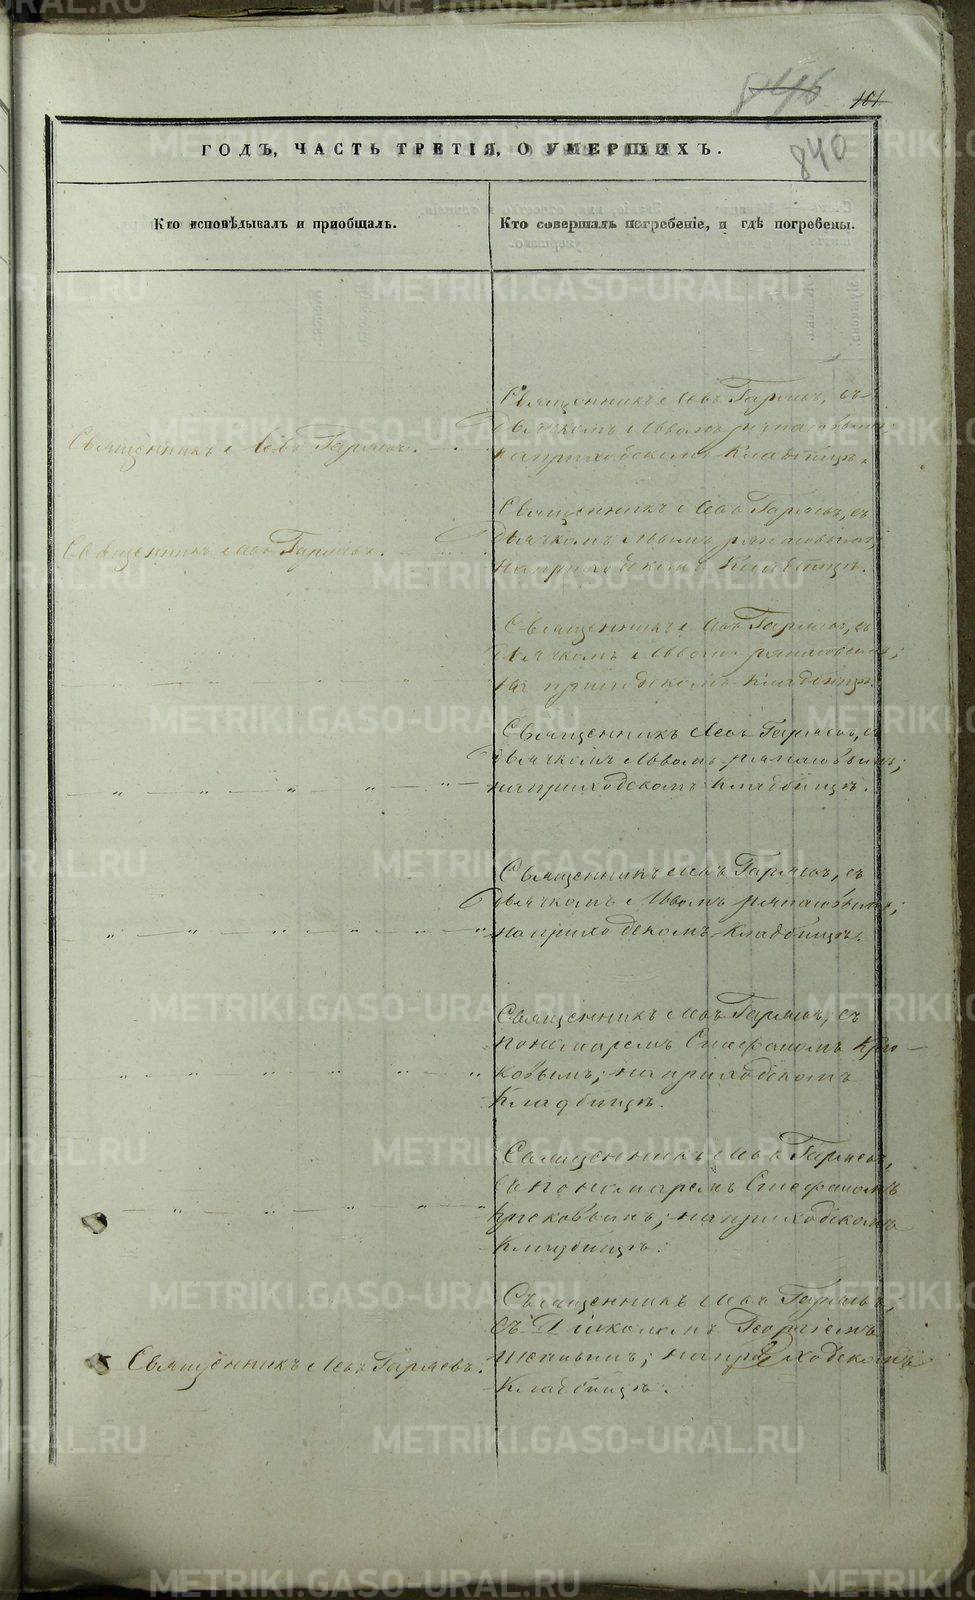 846
101
840
ГОДЪ, ЧАСТЬ ТРЕТІЯ, О УМЕРШИХЪ.
Кто исповѣдывалъ и пріобщалъ.
Кто совершалъ погребеніе, и гдѣ погребены.
Священникъ Левъ Гаряевъ, съ
дьячкомъ Львомъ
Священникъ Левъ Гаряевъ.
на приходскомъ кладбищѣ.
Священникъ Левъ Гаряевъ, съ
Священникъ Левъ Гаряевъ.
дьячкомъ Львомъ
на приходскомъ кладбищѣ.
Священникъ Левъ Гаряевъ, съ
дьячкомъ Львомъ
на приходскомъ кладбищѣ.
Священникъ Левъ Гаряевъ, съ
дьячкомъ Львомъ
на приходскомъ кладбищѣ.
Священникъ Левъ Гаряевъ, съ
дьячкомъ Львомъ
на приходскомъ кладбищѣ.
Священникъ Левъ Гаряевъ, съ
пономаремъ Стефаномъ Крю-
ковымъ; на приходскомъ
кладбищѣ.
Священникъ Левъ Гаряевъ,
съ пономаремъ Стефаномъ
Крюковымъ; на приходскомъ
кладбищѣ.
Священникъ Левъ Гаряевъ,
съ Діакономъ Георгіемъ
Священникъ Левъ Гаряевъ.
на приходскомъ
кладбищѣ.
METRIKI.GASO-URAL.RU